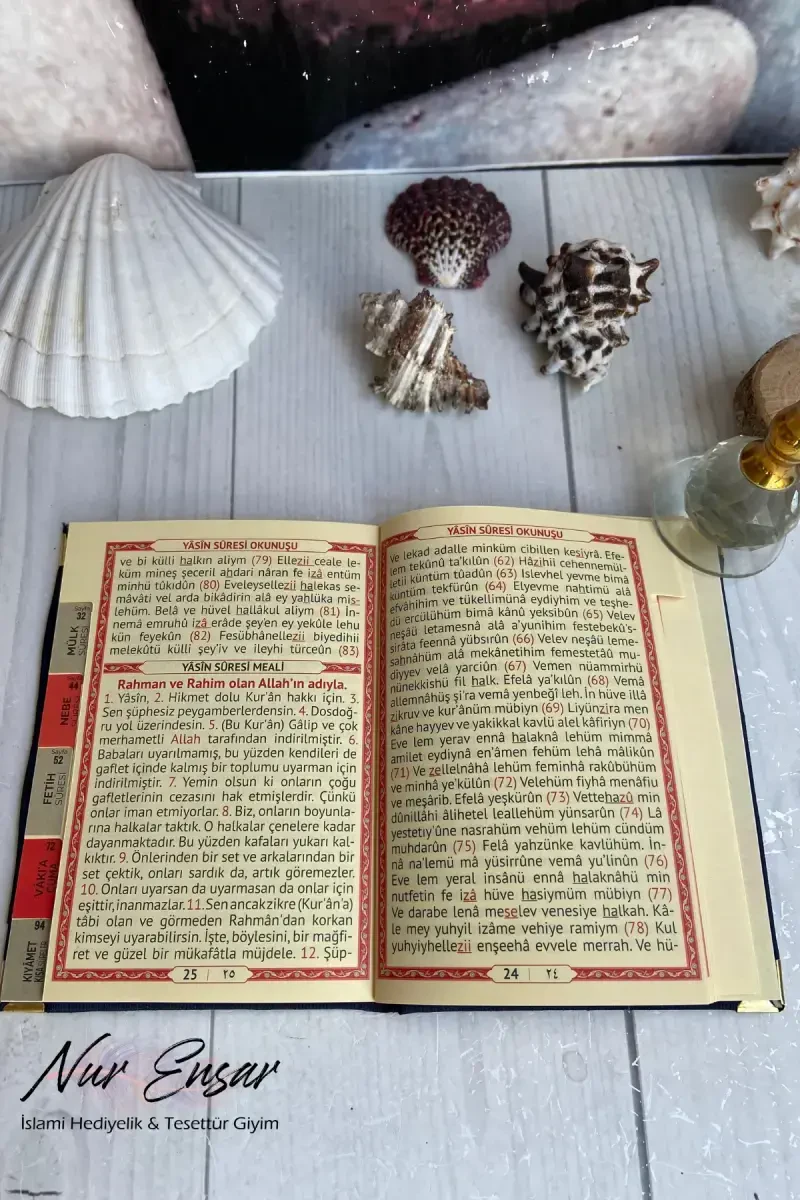 YÂSÎN SÛRESİ OKUNUŞU
ve lekad adalle minküm cibillen kesiyrâ. Efe-
lem tekûnû ta'kılûn (62) Hâzihii cehennemül-
letii küntüm tûadûn (63) Islevhel yevme bimâ
küntüm tekfürûn (64) Elyevme nahtimü alâ
efvâhihim ve tükellimünâ eydiyhim ve teşhe-
dü ercülühüm bimâ kânû yeksibûn (65) Velev
neşâü letamesnâ alâ a'yunihim festebekû's-
sirâta feennâ yübsırûn (66) Velev neşâü leme-
sahnâhüm alâ mekânetihim femestetâû mu-
dıyyev velâ yarciûn (67) Vemen nüammirhü
nünekkishü fil halk. Efelâ ya'kılûn (68) Vemâ
allemnâhüş şi'ra vemâ yenbeğî leh. İn hüve illâ
zikruv ve kur'ânüm mübiyn (69) Liyünzira men
kâne hayyev ve yakikkal kavlü alel kâfiriyn (70)
Eve lem yerav ennâ halaknâ lehüm mimmâ
amilet eydiynâ en'âmen fehüm lehâ mâlikûn
(71) Ve zellelnâhâ lehüm feminhâ rakûbühüm
ve minhâ ye'külûn (72) Velehüm fiyhâ menâfiu
ve meşârib. Efelâ yeşkürûn (73) Vettehazû min
dûnillâhi âlihetel leallehüm yünsarûn (74) Lâ
yestetıy'ûne nasrahüm vehüm lehüm cündüm
muhdarûn (75) Felâ yahzünke kavlühüm. İn-
nâ na'lemü mâ yüsirrûne vemâ yu'linûn (76)
Eve lem yeral insânü ennâ halaknâhü min
nutfetin fe izâ hüve hasiymüm mübiyn (77)
Ve darabe lenâ meselev venesiye halkah. Kâ-
le mey yuhyil izâme vehiye ramiym (78) Kul
yuhyiyhellezii enşeehâ evvele merrah. Ve hü-
24 | ٢٤
YÂSÎN SÛRESİ OKUNUŞU
ve bi külli halkın aliym (79) Ellezii ceale le-
küm mineş şeceril ahdari nâran fe izâ entüm
minhü tûkıdûn (80) Eveleysellezii halekas se-
mâvâti vel arda bikâdirin alâ ey yahlüka mis-
lehüm. Belâ ve hüvel hallâkul aliym (81) İn-
nemâ emruhû izâ erâde şey'en ey yekûle lehu
kün feyekûn (82) Fesübhânellezii biyedihii
melekûtü külli şey'iv ve ileyhi türceûn (83)
YÂSÎN SÛRESİ MEALİ
Rahman ve Rahim olan Allah'ın adıyla.
1. Yâsîn, 2. Hikmet dolu Kur'ân hakkı için. 3.
Sen şüphesiz peygamberlerdensin. 4. Dosdoğ-
ru yol üzerindesin. 5. (Bu Kur'ân) Gâlip ve çok
merhametli Allah tarafından indirilmiştir. 6.
Babaları uyarılmamış, bu yüzden kendileri de
gaflet içinde kalmış bir toplumu uyarman için
indirilmiştir. 7. Yemin olsun ki onların çoğu
gafletlerinin cezasını hak etmişlerdir. Çünkü
onlar iman etmiyorlar. 8. Biz, onların boyunla-
rına halkalar taktık. O halkalar çenelere kadar
dayanmaktadır. Bu yüzden kafaları yukarı kal-
kıktır. 9. Önlerinden bir set ve arkalarından bir
set çektik, onları sardık da, artık göremezler.
10. Onları uyarsan da uyarmasan da onlar için
eşittir, inanmazlar. 11. Sen ancak zikre (Kur'ân'a)
tâbi olan ve görmeden Rahmân'dan korkan
kimseyi uyarabilirsin. İşte, böylesini, bir mağfi-
ret ve güzel bir mükafâtla müjdele. 12. Şüp-
25 | ٢٥
Sayfa
32
MÜLK
SÛRESİ
44
NEBE
Sayfa
52
FETİH
SÛRESİ
72
VAKI'A
CUMA
94
KIYÂMET
Nur Ensar
İslami Hediyelik & Tesettür Giyim